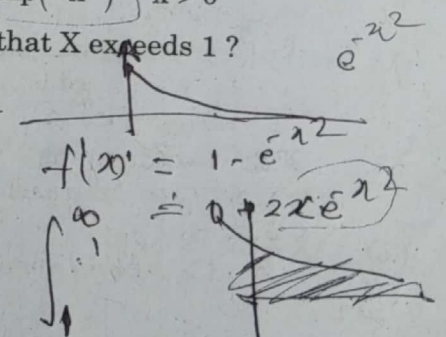 x > 0
that X exceeds 1 ?
e^{-x^2}
f(x)' = 1 - e^{-x^2}
= 0 + 2x e^{-x^2}
∫_1^∞